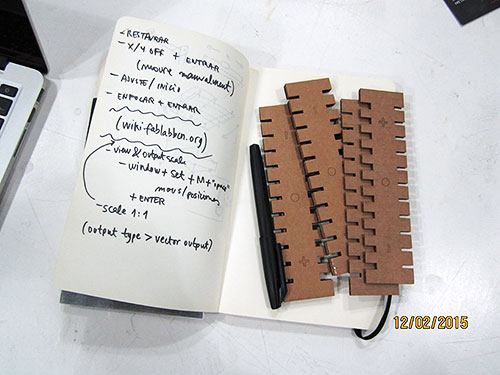 <RESTAURAR
- X/Y OFF + ENTRAR
(mouse manualment)
- AJUSTE/INICIO
- ENFOCAR + ENTRAR
(wiki.fablabbcn.org)
- view & output scale
- window + set + M + "
mous/posicionar
+ ENTER
- scale 1:1
(output type > vector output)
12/02/2015